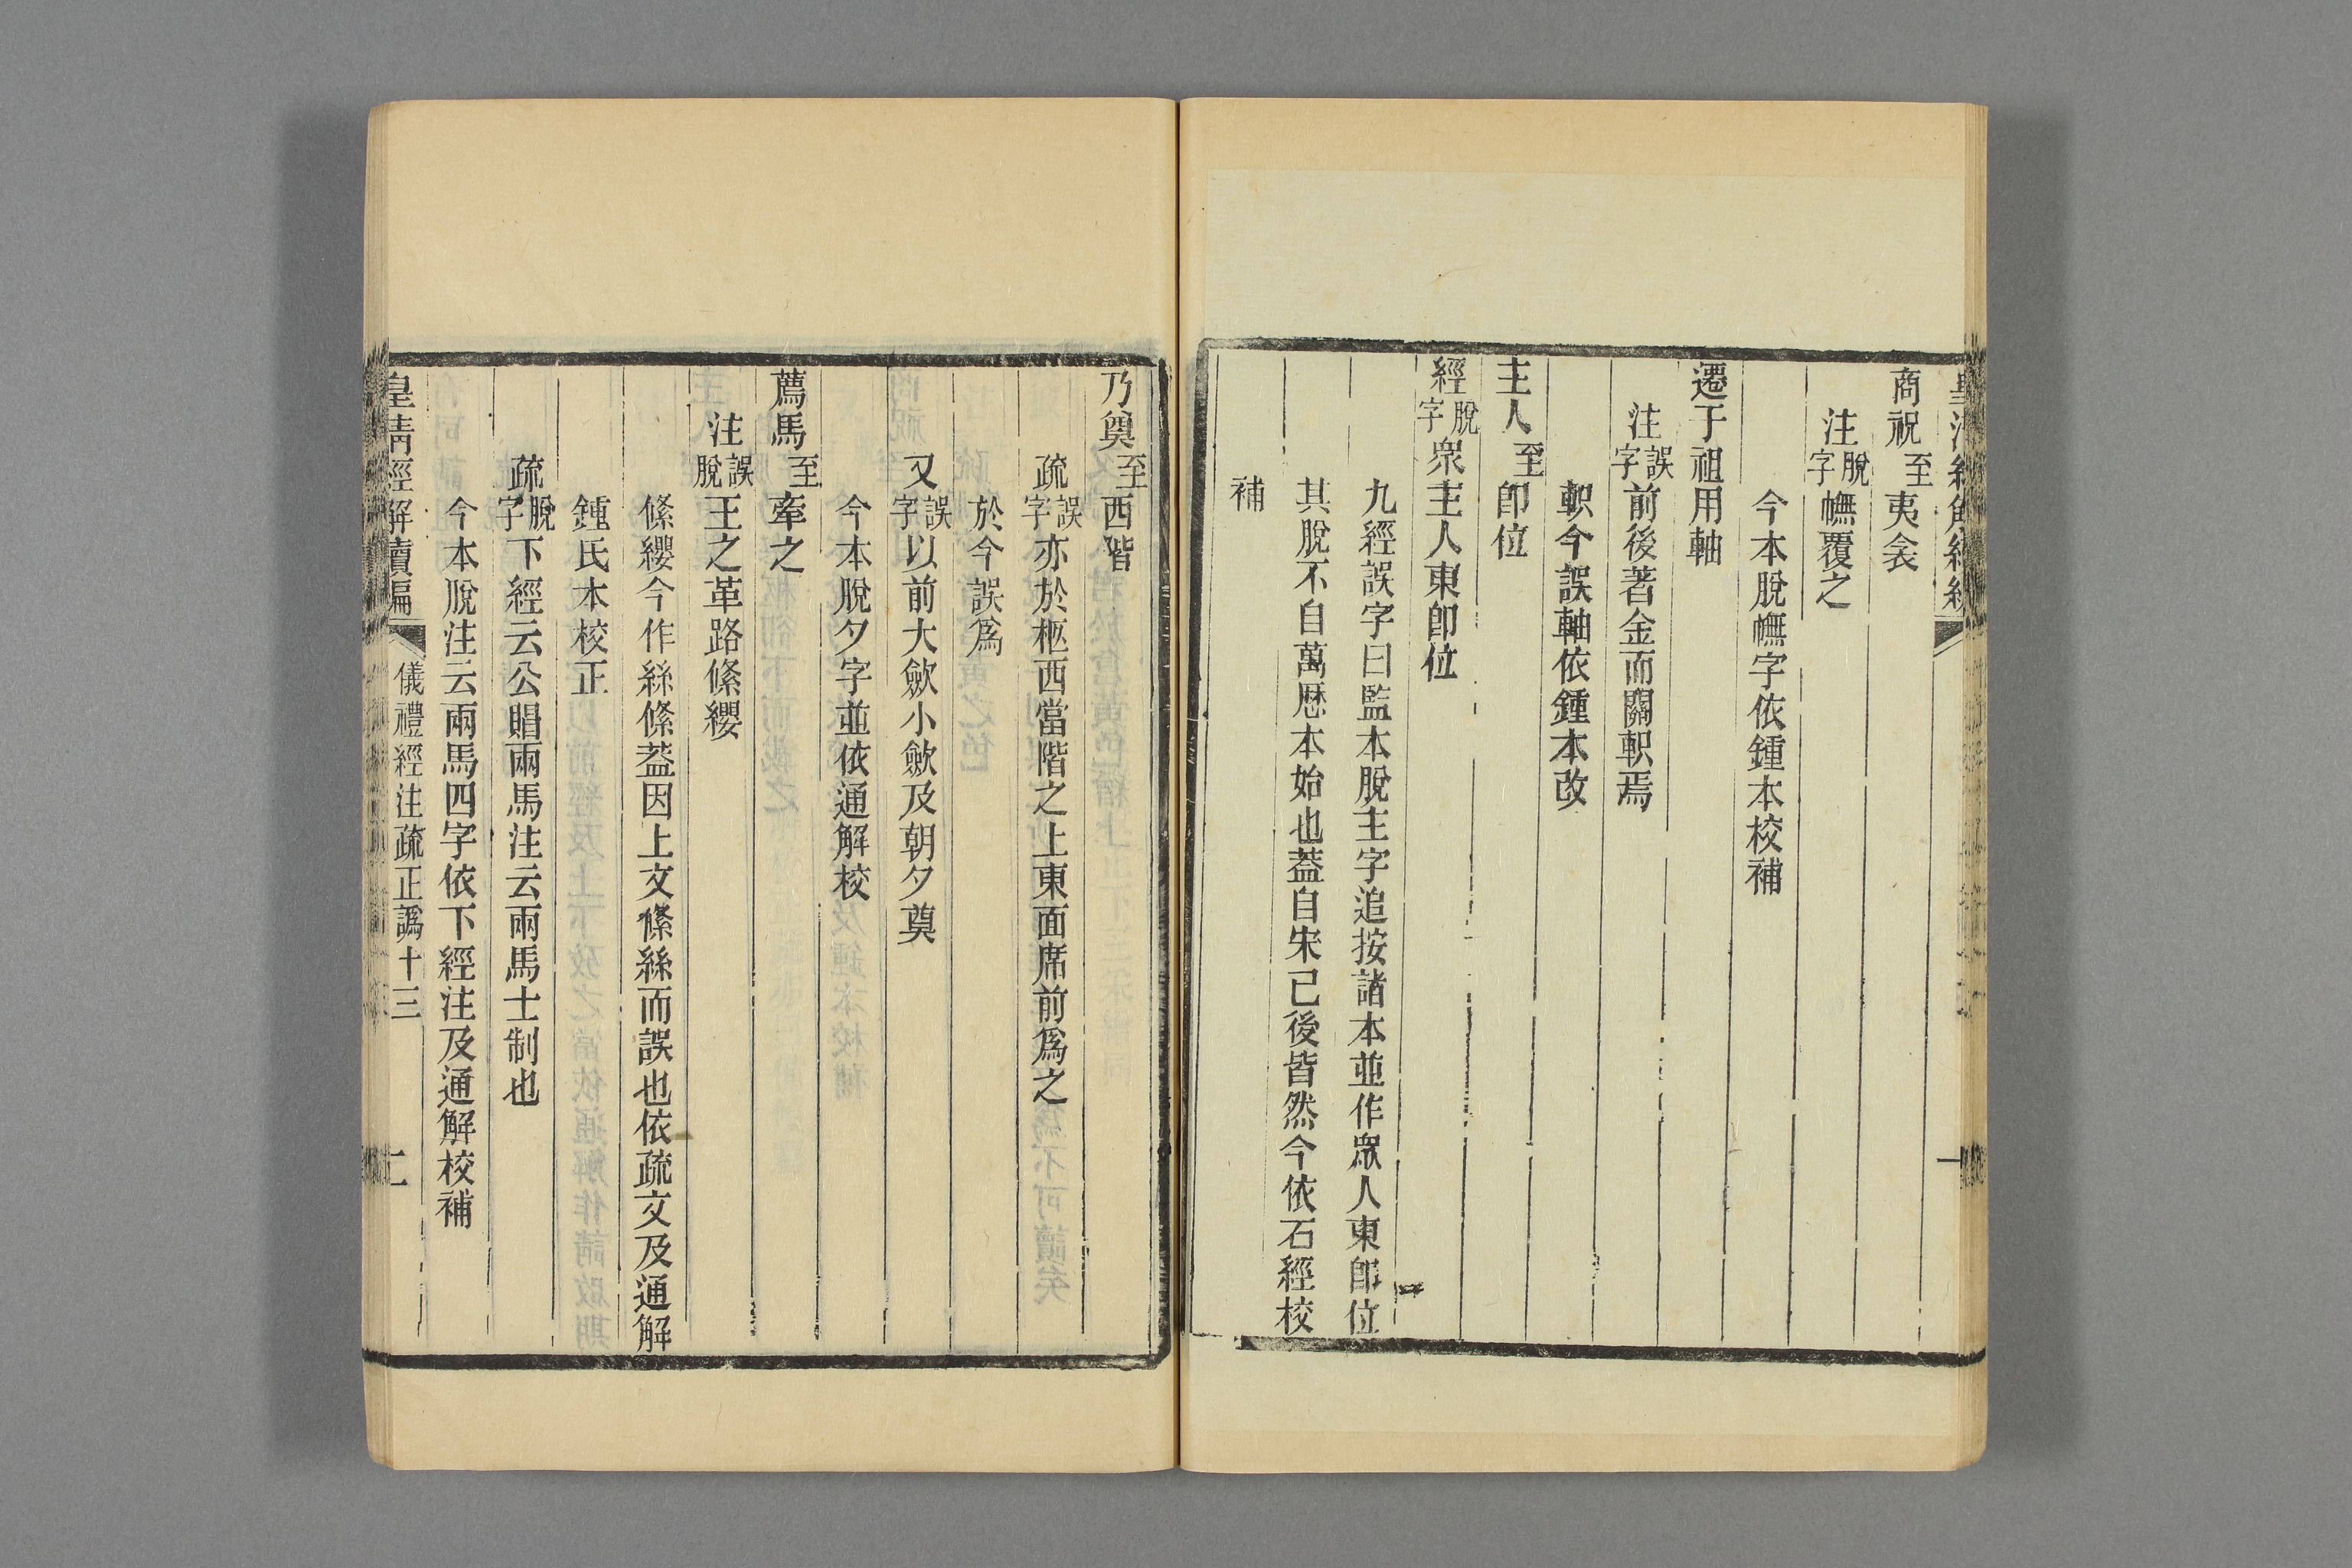 商祝至夷衾
注脫字幠覆之
今本脫幠字依鍾本校補
遷于祖用軸
注誤字前後著金而關軹焉
軹今誤軸依鍾本改
主人至卽位
經脫字衆主人東卽位
九經誤字曰監本脫主字追按諸本並作衆人東卽位
其脫不自萬歷本始也蓋自宋已後皆然今依石經校
補
一
乃奠至西階
疏誤字亦於柩西當階之上東面席前爲之
於今誤爲
又誤字以前大歛小歛及朝夕奠
今本脫夕字並依通解校
薦馬至牽之
注誤脫王之革路絛纓
絛纓今作絲絛蓋因上文絛絲而誤也依疏文及通解
鍾氏本校正
疏脫字下經云公賵兩馬注云兩馬士制也
今本脫注云兩馬四字依下經注及通解校補
皇清經解續編
儀禮經注疏正譌十三
二